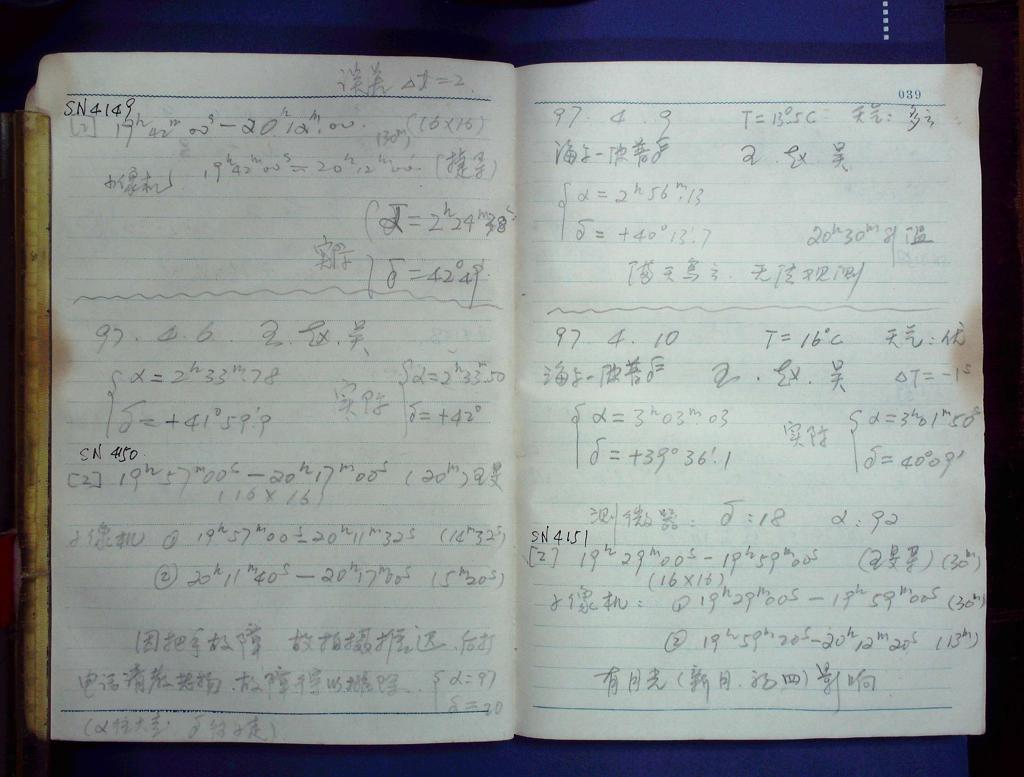 误差 Δt=2
SN4149
[2] 19h42m00s-20h12m.00 (16×16)
(30m)
照像机 19h42m00s-20h12m00s
α=2h24m38s
实际
δ=42°49′
97.4.6 王.赵.吴
α=2h33m.78 实际 α=2h33m50
δ=+41°59′.9 δ=+42°
SN4150
[2] 19h57m00s-20h17m00s (20m)
(16×16)
照像机 ① 19h57m00s-20h11m32s (14m32s)
② 20h11m40s-20h17m00s (5m20s)
因把手故障 故拍摄推迟.后打
电话请教 故障得以排除. α=91
δ=20
039
97.4.9 T=13°.5C 天气: 多云
海尔-波普彗 王.赵.吴
α=2h56m.13
δ=+40°13′.7 20h30m
满天乌云.无法观测
97.4.10 T=16°C 天气:优
海尔-波普彗 王.赵.吴 ΔT=-1s
α=3h03m.03 实际 α=3h01m50s
δ=+39°36′.1 δ=40°09′
测微器: δ:18 α:92
SN4151
[2] 19h29m00s-19h59m00s (30m)
(16×16)
照像机: ① 19h29m00s-19h59m00s (30m)
② 19h59m20s-20h12m20s (13m)
有月光(新月.初四)影响